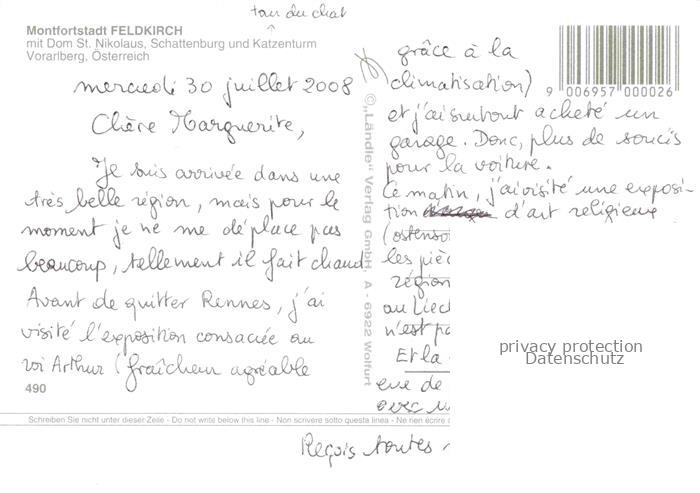 tour du chat
Montfortstadt FELDKIRCH
mit Dom St. Nikolaus, Schattenburg und Katzenturm
Vorarlberg, Österreich
mercredi 30 juillet 2008
Chère Marguerite,
Je suis arrivée dans une
très belle région, mais pour le
moment je ne me déplace pas
beaucoup, tellement il fait chaud.
Avant de quitter Rennes, j'ai
visité l'exposition consacrée au
roi Arthur (fraîcheur agréable
490
© „Ländle" Verlag GmbH, A - 6922 Wolfurt
grâce à la
climatisation)
et j'ai surtout acheté un
garage. Donc, plus de soucis
pour la voiture.
Ce matin, j'ai visité une exposi-
tion d'art religieux
(ostenso
les pièc
région
au Liech
n'est pa
Et la
eue de
avec u
Reçois toutes
9 006957 000026
privacy protection
Datenschutz
Schreiben Sie nicht unter dieser Zeile - Do not write below this line - Non scrivere sotto questa linea - Ne rien écrire